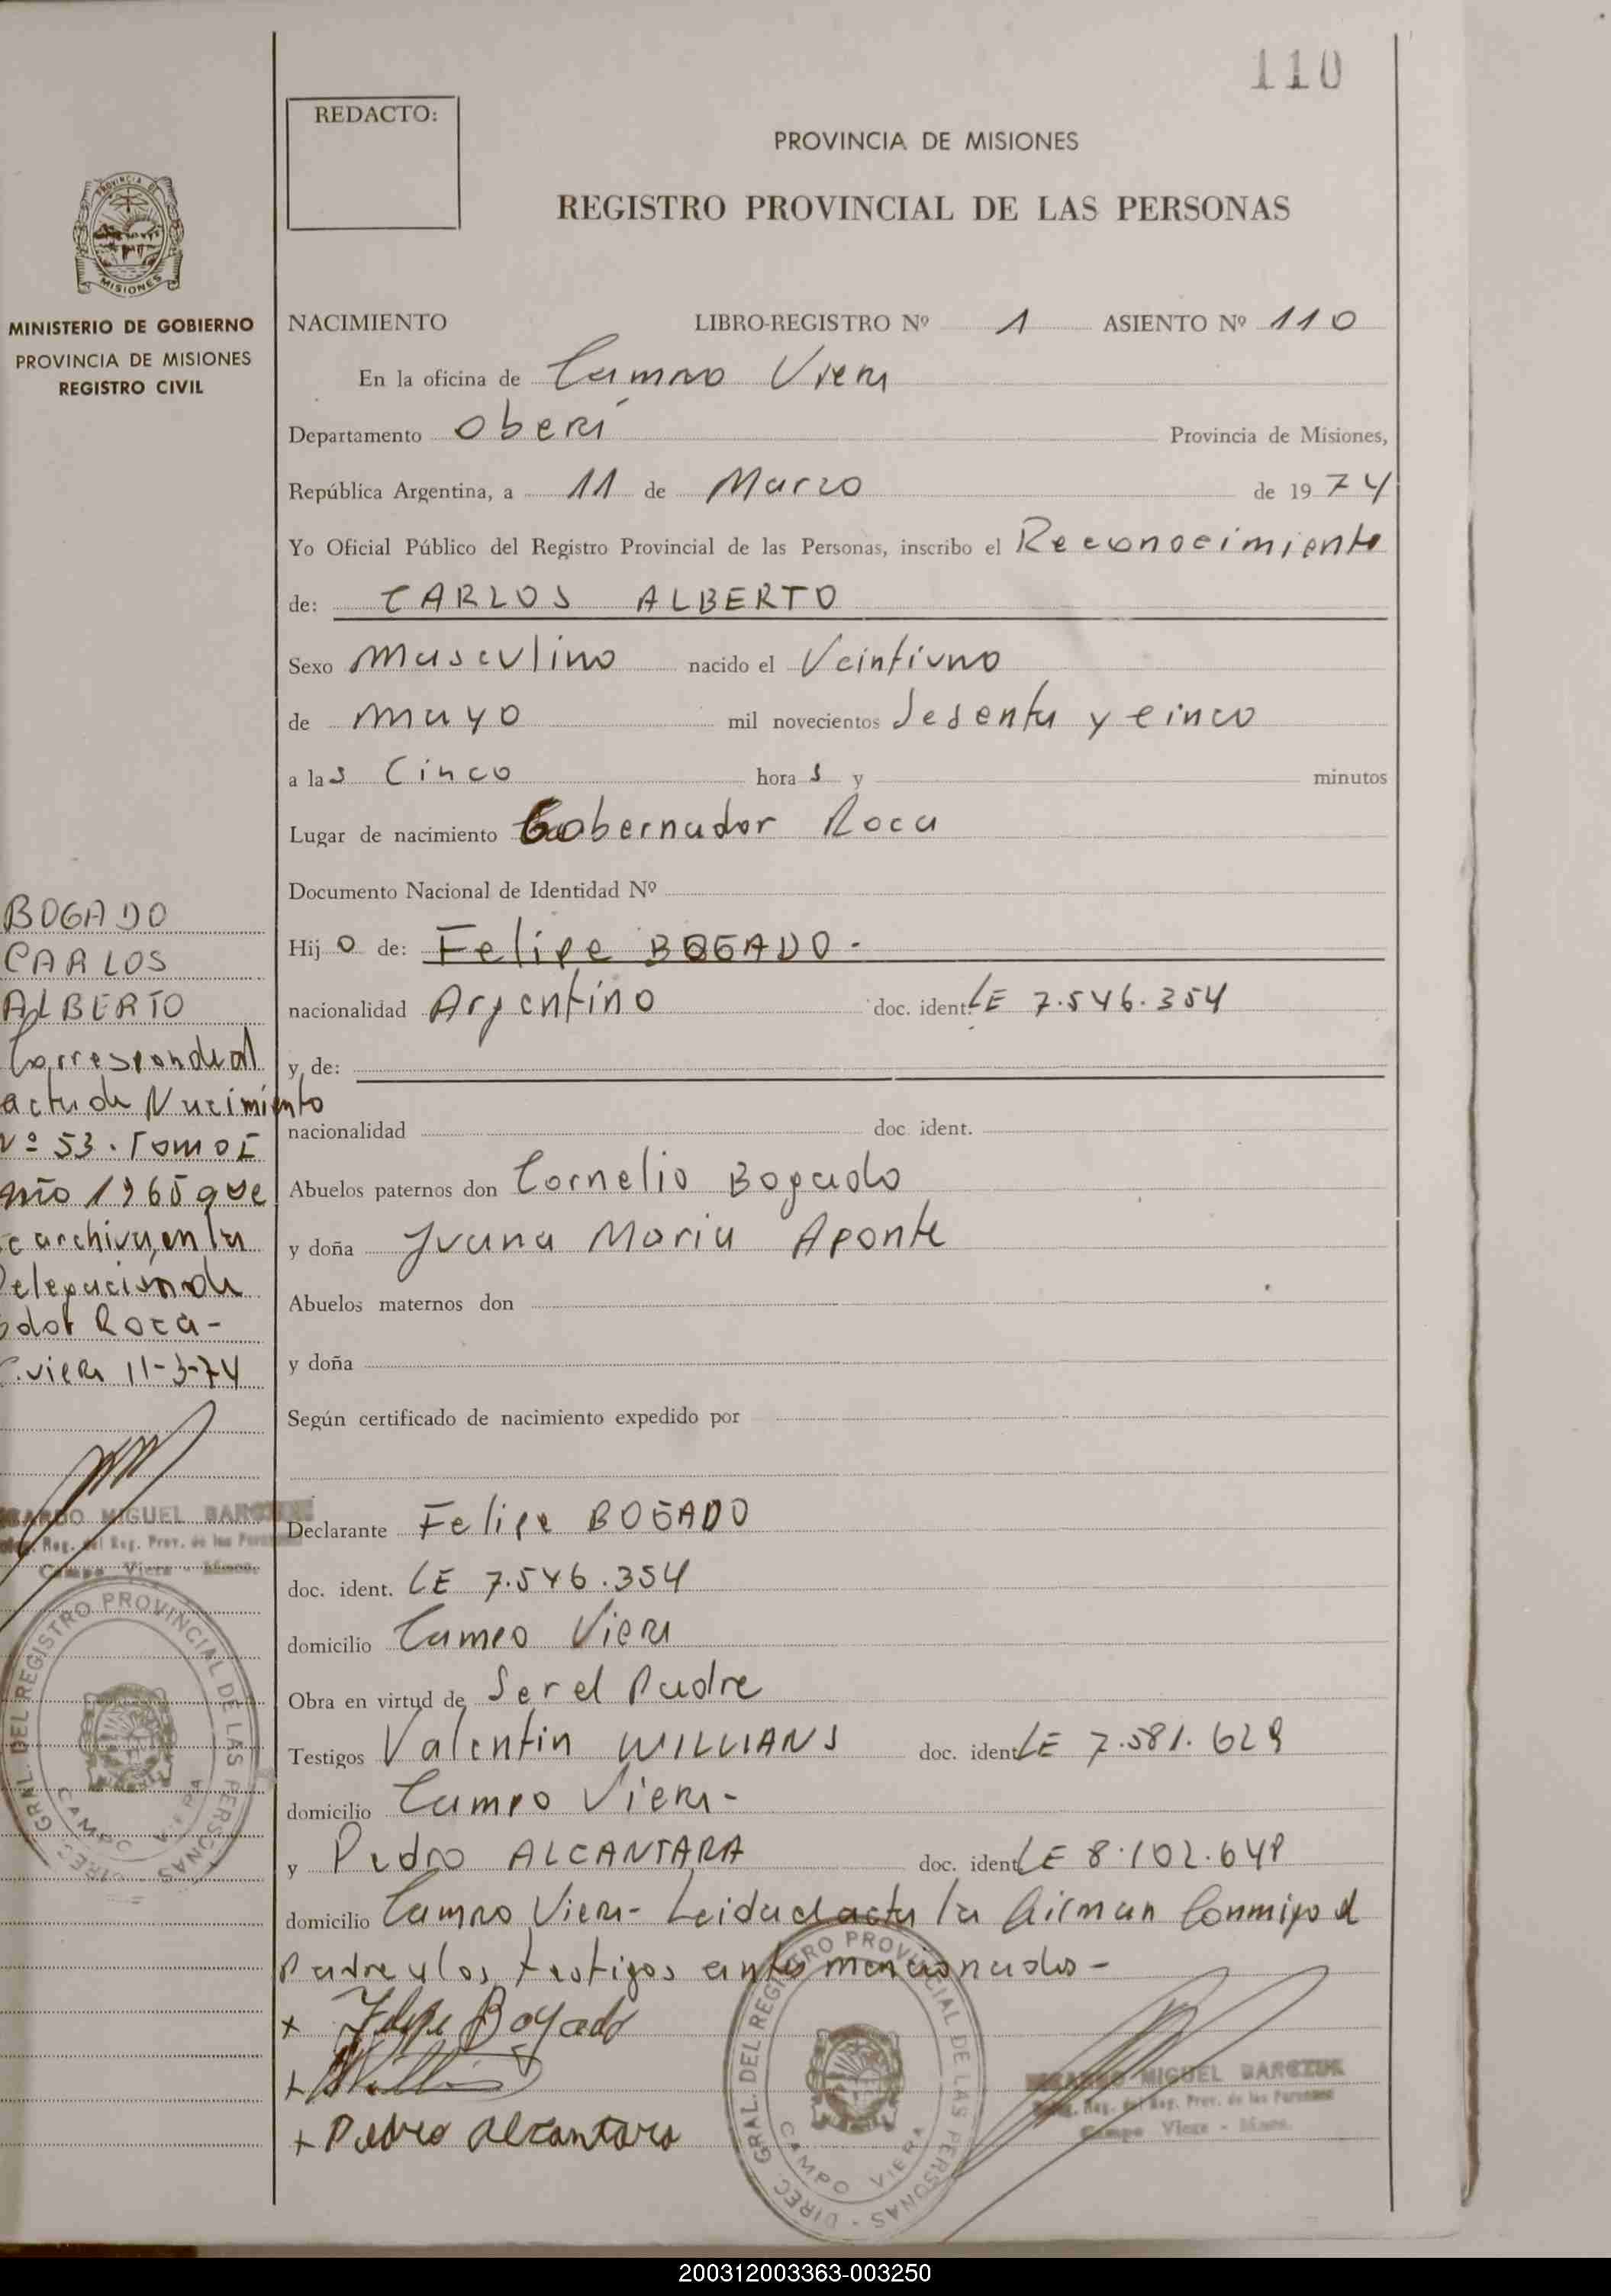 110
REDACTO:
PROVINCIA DE MISIONES
REGISTRO PROVINCIAL DE LAS PERSONAS
PROVINCIA DE
MISIONES
MINISTERIO DE GOBIERNO
PROVINCIA DE MISIONES
REGISTRO CIVIL
NACIMIENTO LIBRO-REGISTRO Nº 1 ASIENTO Nº 110
En la oficina de Campo Viera
Departamento Oberá Provincia de Misiones,
República Argentina, a 11 de Marzo de 1974
Yo Oficial Público del Registro Provincial de las Personas, inscribo el Reconocimiento
de: CARLOS ALBERTO
Sexo Masculino nacido el Veintiuno
de mayo mil novecientos Sesenta y cinco
a las Cinco horas y minutos
Lugar de nacimiento Gobernador Roca
Documento Nacional de Identidad Nº
Hijo de: Felipe BOGADO.-
nacionalidad Argentino doc. ident. LE 7.546.354
y de:
nacionalidad doc. ident.
Abuelos paternos don Cornelio Bogado
y doña Juana Maria Aponte
Abuelos maternos don
y doña
Según certificado de nacimiento expedido por
Declarante Felipe BOGADO
doc. ident. LE 7.546.354
domicilio Campo Viera
Obra en virtud de Ser el Padre
Testigos Valentin WILLIANS doc. ident. LE 7.581.629
domicilio Campo Viera-
y Pedro ALCANTARA doc. ident. LE 8.102.648
domicilio Campo Viera- Leida el acta la firman Conmigo el
Padre y los testigos antes mencionados-
x Felipe Bogado
+
+ Pedro Alcantara
BOGADO
CARLOS
ALBERTO
Corresponde al
acta de Nacimiento
Nº 53. Tomo I
año 1965 que
se archiva en la
Delegacion de
Gdor Roca-
C. Viera 11-3-74
MIGUEL
del Reg. Prov. de las Personas
Campo Viera - Mnes.
DIREC. GRAL. DEL REGISTRO PROVINCIAL DE LAS PERSONAS
CAMPO VIERA
DIREC. GRAL. DEL REGISTRO PROVINCIAL DE LAS PERSONAS
CAMPO VIERA
MIGUEL
del Reg. Prov. de las Personas
Campo Viera - Mnes.
200312003363-003250